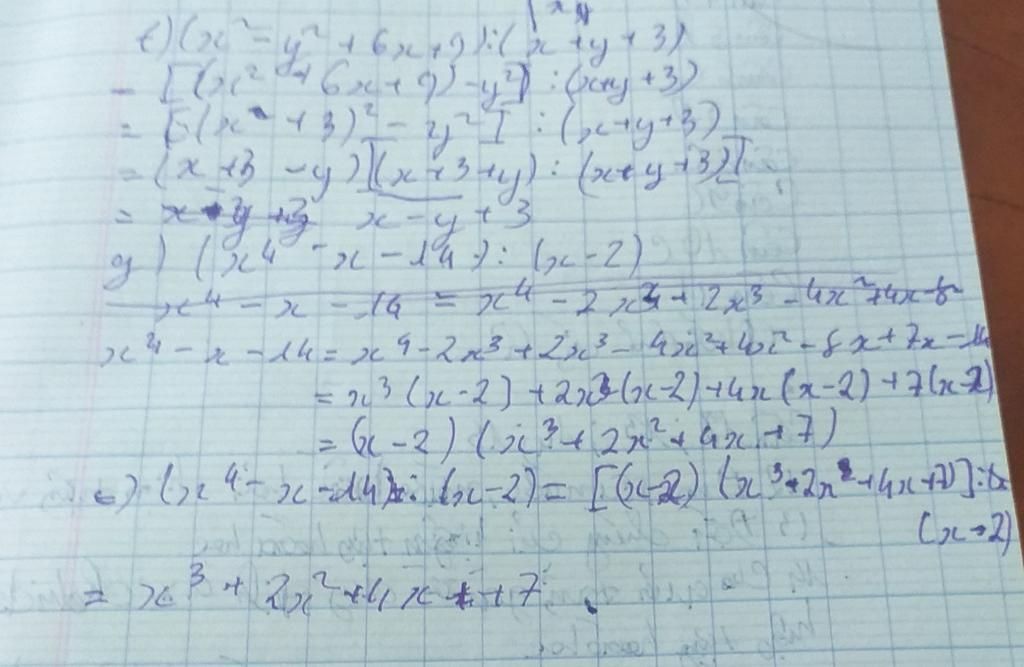 f) (x² - y² + 6x + 9) : (x + y + 3)
= [(x² + 6x + 9) - y²] : (x + y + 3)
= [(x + 3)² - y²] : (x + y + 3)
= (x + 3 - y)(x + 3 + y) : (x + y + 3)
= x - y + 3
g) (x⁴ - x - 14) : (x - 2)
x⁴ - x - 14 = x⁴ - 2x³ + 2x³ - 4x² + 4x - 8
x⁴ - x - 14 = x⁴ - 2x³ + 2x³ - 4x² + 4x² - 8x + 7x - 14
= x³(x - 2) + 2x²(x - 2) + 4x(x - 2) + 7(x - 2)
= (x - 2)(x³ + 2x² + 4x + 7)
=> (x⁴ - x - 14) : (x - 2) = [(x - 2)(x³ + 2x² + 4x + 7)] :
(x - 2)
= x³ + 2x² + 4x + 7